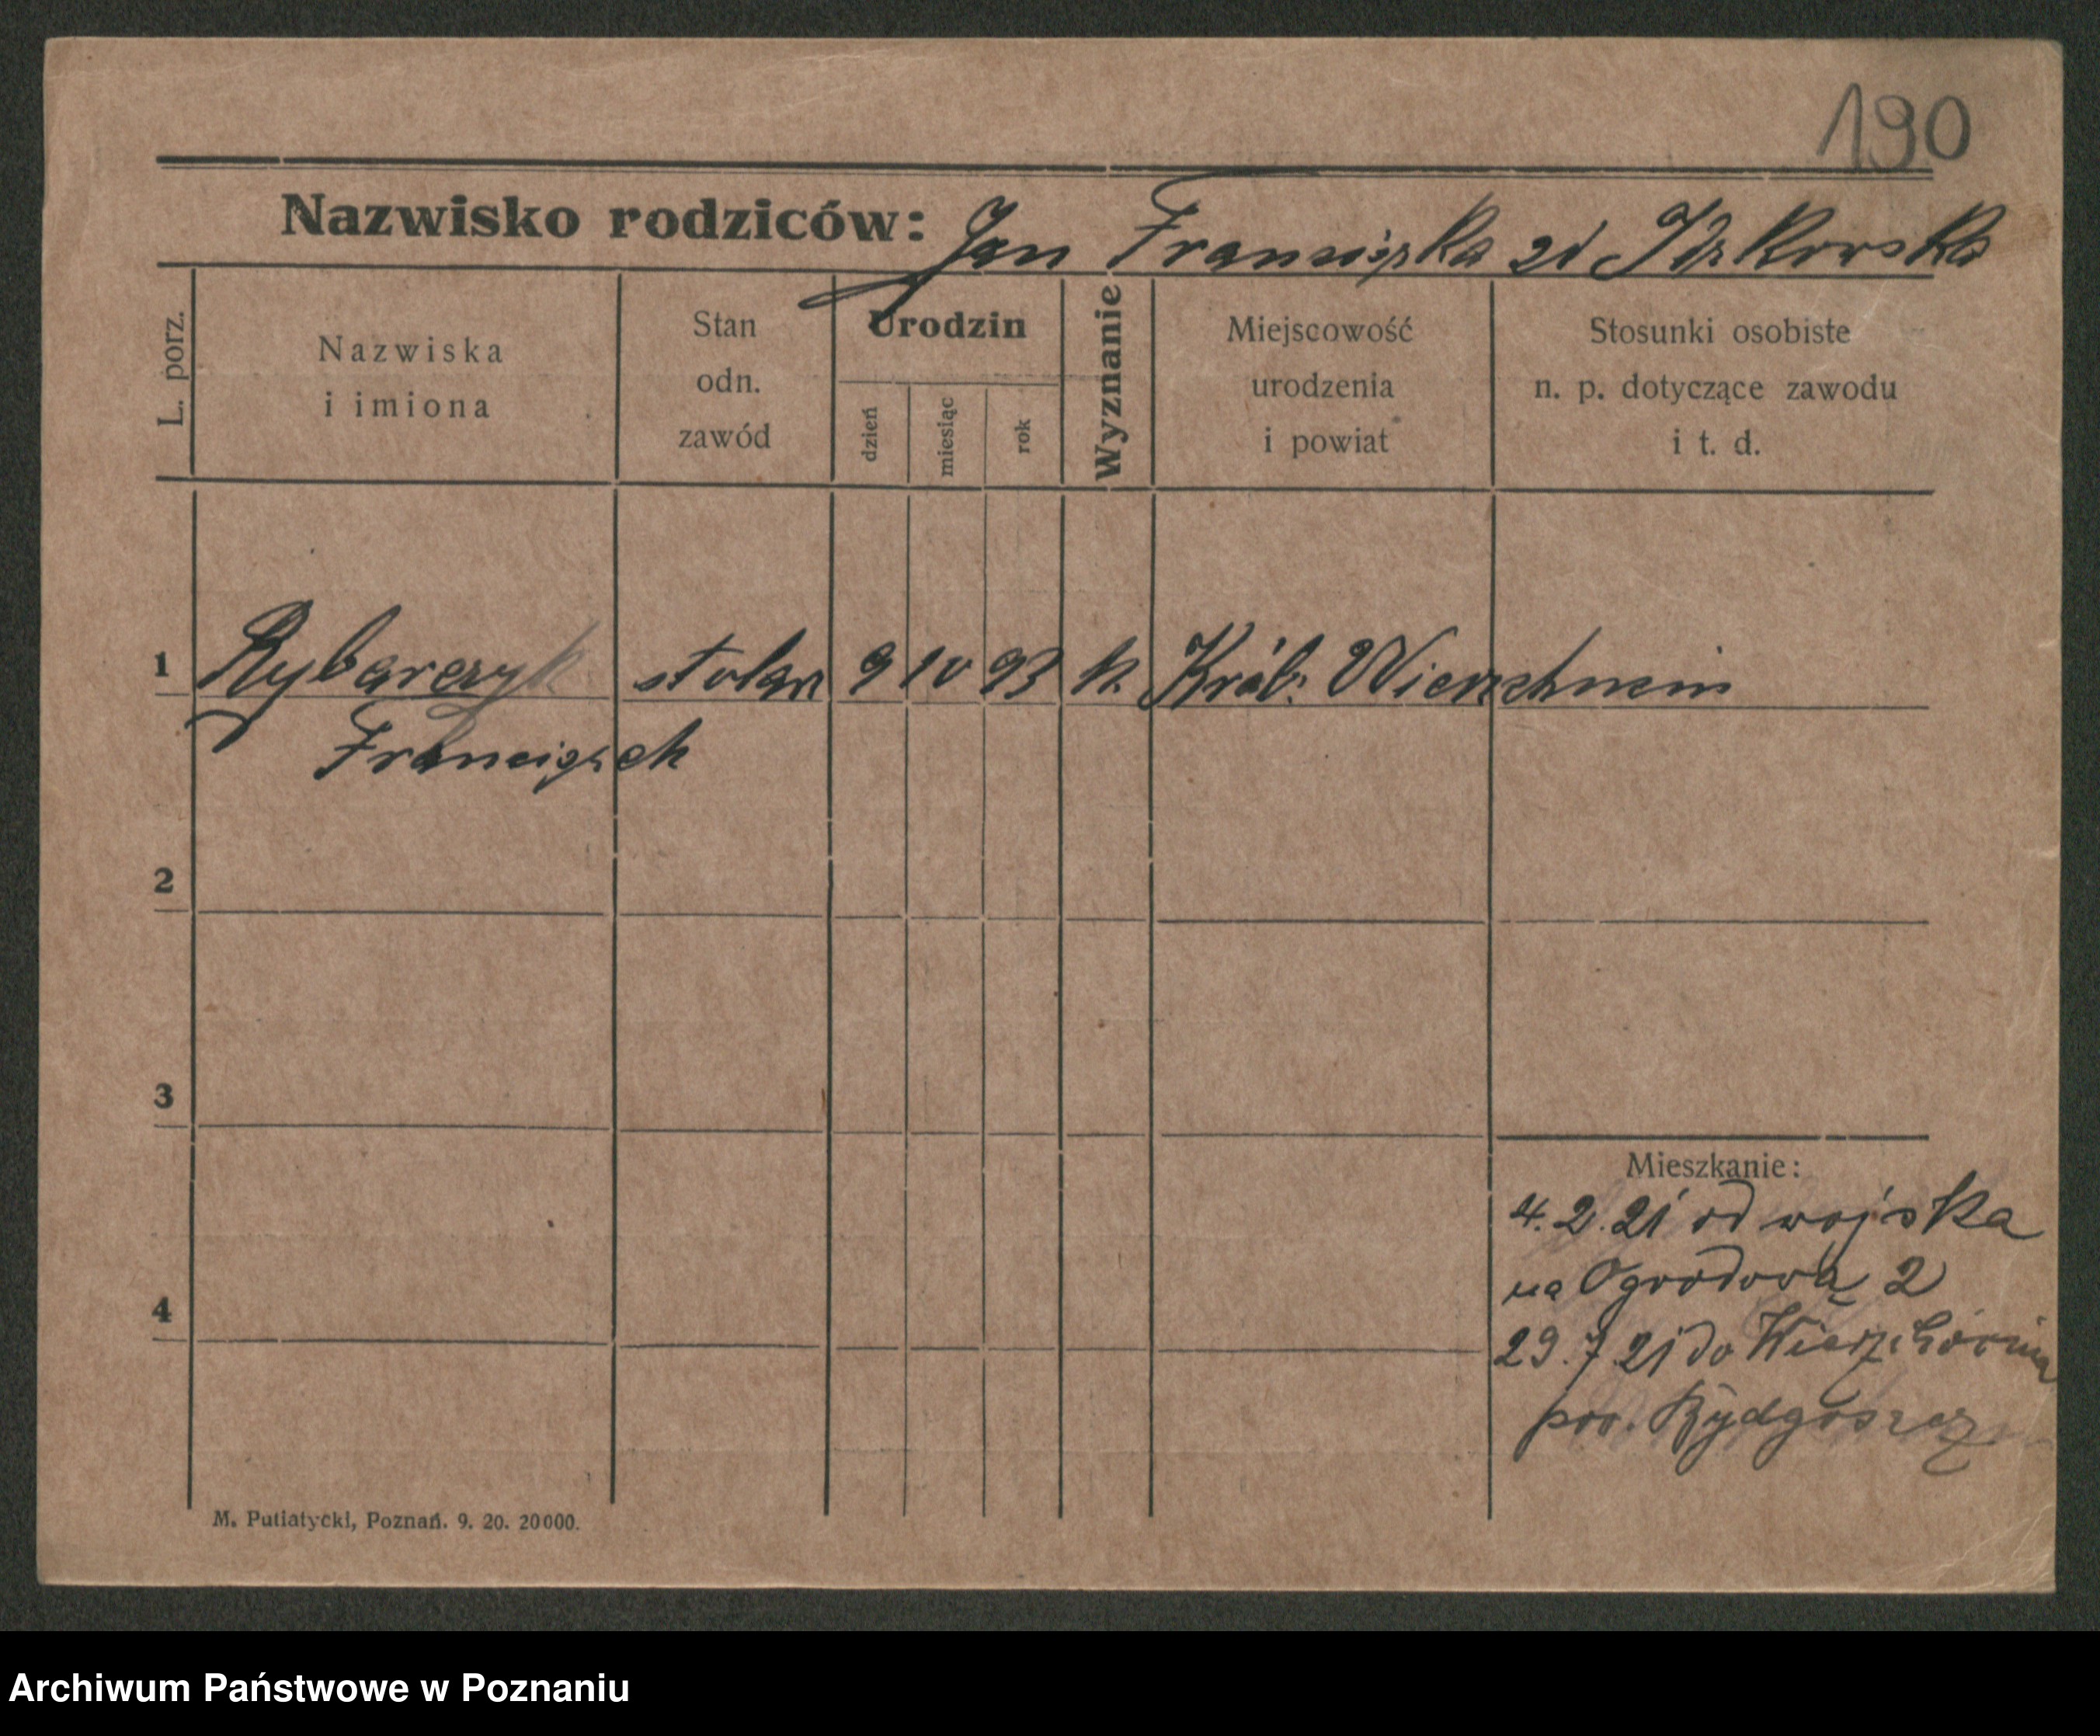 190
Nazwisko rodziców: Jan Franciszka zd Idzkowska
L. porz.
Nazwiska
i imiona
Stan
odn.
zawód
Urodzin
dzień
miesiąc
rok
Wyznanie
Miejscowość
urodzenia
i powiat
Stosunki osobiste
n. p. dotyczące zawodu
i t. d.
1 Rybarczyk stolarz 9 10 93 k.
Franciszek
2
3
Mieszkanie:
4. 2. 21 od wojska
na Ogrodową 2
4
29. 7. 21 do
pow. Bydgoszcz
M. Putiatycki, Poznań. 9. 20. 20000.
Archiwum Państwowe w Poznaniu